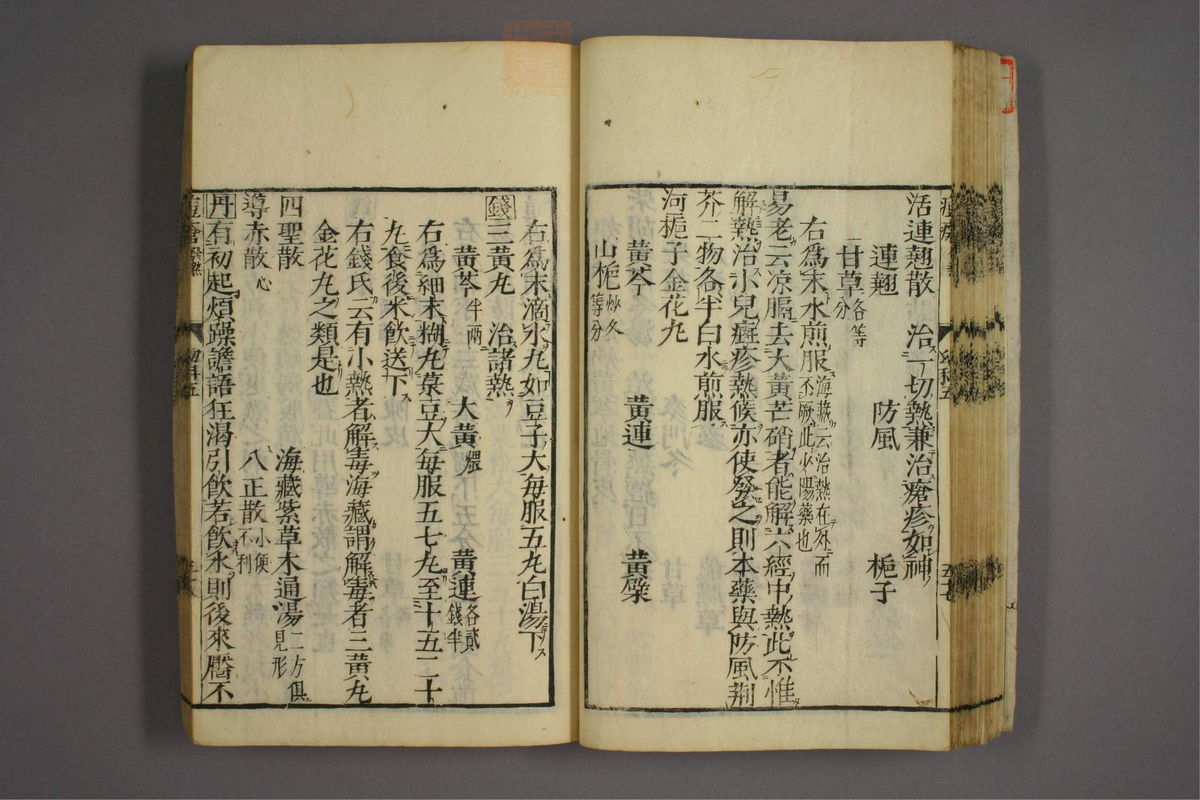 活連翹散　治一切熱兼治瘡疹如神
連翹　防風　梔子
甘草各等分
右爲末水煎服海藏云治熱在外而不厥此少陽藥也
易老云凉膈去大黄芒硝者能解六經中熱此不惟
解熱治小兒癍疹熱候亦使發之則本藥與防風荆
芥二物各半白水煎服
河梔子金花丸
黄芩　黄連　黄檗
山梔炒各等分
右爲末滴水丸如豆子大每服五丸白湯下
錢三黄丸　治諸熱
黄芩半兩　大黄煨　黄連各貳錢半
右爲細末糊丸菉豆大每服五七丸至十五二十
丸食後米飲送下
右錢氏云有小熱者解毒海藏謂解毒者三黄丸
金花丸之類是也
四聖散　海藏紫草木通湯二方俱見形
導赤散心　八正散小便不利
丹有初起煩躁譫語狂渴引飲若飲水則後來靨不
幼科五